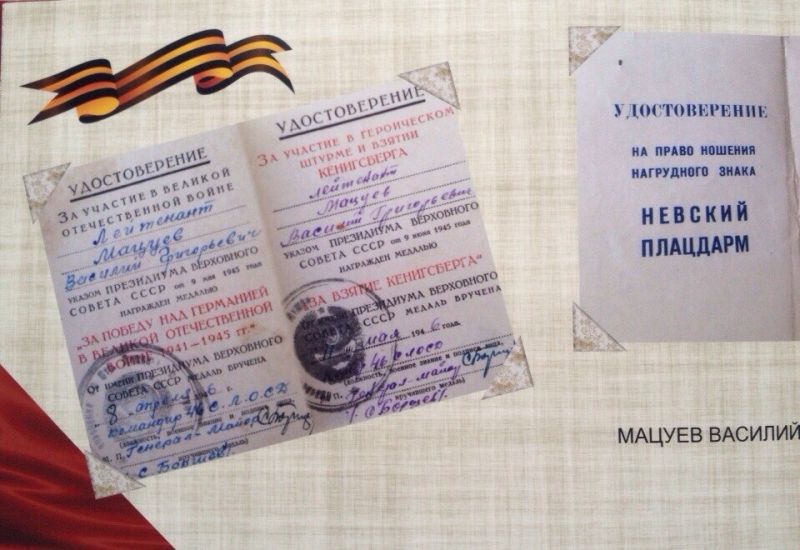 УДОСТОВЕРЕНИЕ
ЗА УЧАСТИЕ В ВЕЛИКОЙ
ОТЕЧЕСТВЕННОЙ ВОЙНЕ
Лейтенант
Мацуев
Василий Григорьевич
УКАЗОМ ПРЕЗИДИУМА ВЕРХОВНОГО
СОВЕТА СССР от 9 мая 1945 года
НАГРАЖДЕН МЕДАЛЬЮ
"ЗА ПОБЕДУ НАД ГЕРМАНИЕЙ
В ВЕЛИКОЙ ОТЕЧЕСТВЕННОЙ
ВОЙНЕ 1941—1945 гг."
От имени ПРЕЗИДИУМА ВЕРХОВНОГО
СОВЕТА СССР МЕДАЛЬ ВРУЧЕНА
"8" апреля 6 г.
Командир 46 С.Л.О.С.К.
(должность, военное звание и подпись
М. П. Генерал-Майор
вручившего медаль)
УДОСТОВЕРЕНИЕ
ЗА УЧАСТИЕ В ГЕРОИЧЕСКОМ
ШТУРМЕ И ВЗЯТИИ
КЕНИГСБЕРГА
лейтенант
Мацуев
Василий Григорьевич
УКАЗОМ ПРЕЗИДИУМА ВЕРХОВНОГО
СОВЕТА СССР от 9 июня 1945 года
НАГРАЖДЕН МЕДАЛЬЮ
"ЗА ВЗЯТИЕ КЕНИГСБЕРГА"
ПРЕЗИДИУМА ВЕРХОВНОГО
СОВЕТА СССР МЕДАЛЬ ВРУЧЕНА
мая 1946 года.
(должность, военное звание и подпись лица,
П. Генерал майор
вручившего медаль)
УДОСТОВЕРЕНИЕ
НА ПРАВО НОШЕНИЯ
НАГРУДНОГО ЗНАКА
НЕВСКИЙ
ПЛАЦДАРМ
МАЦУЕВ ВАСИЛИЙ